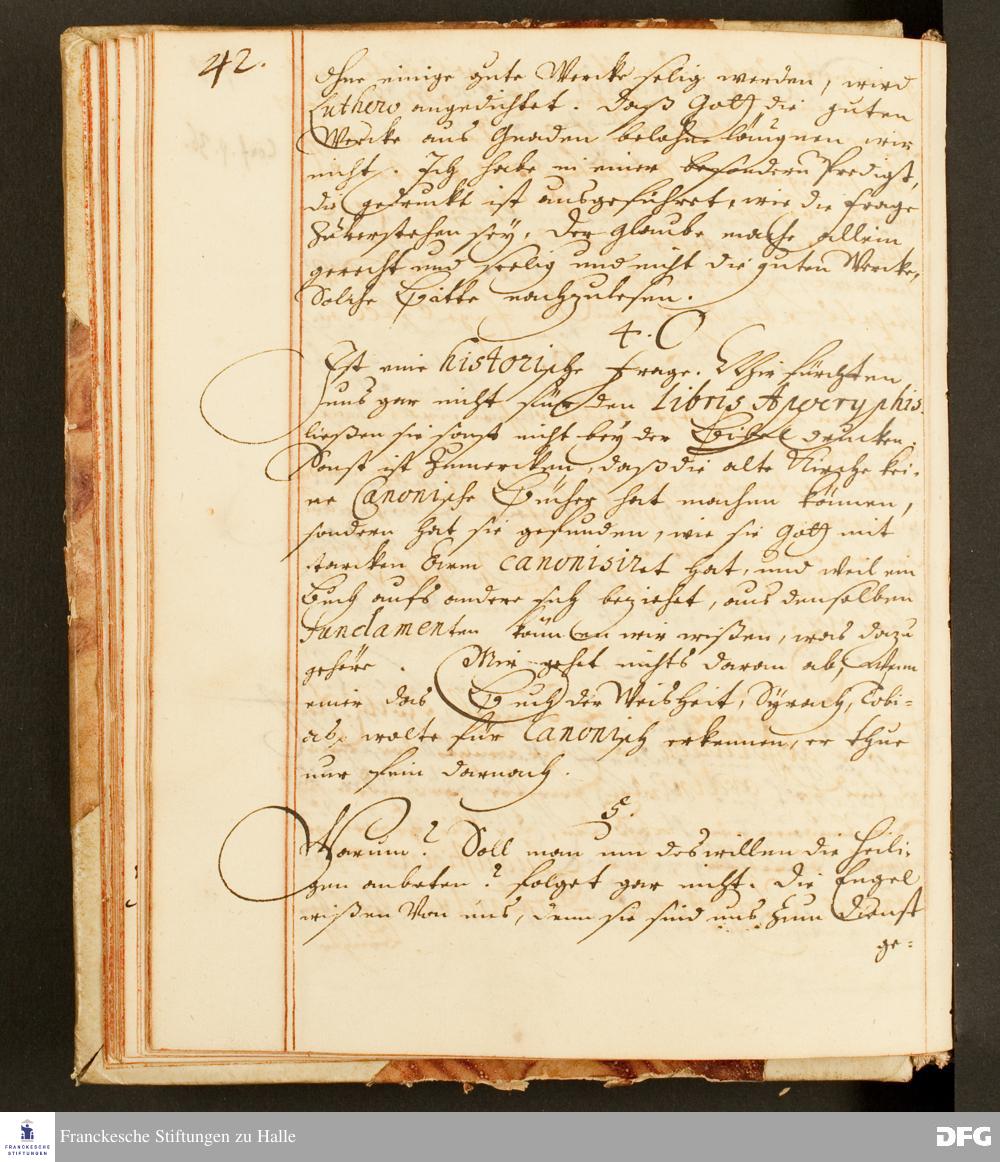 42.
ohne einige gute Wercke selig werden, wird
Luthero angedichtet. Daß Gott die guten
Wercke aus Gnaden belohne läugnen wir
nicht. Ich habe in einer besondern Predigt,
die gedruckt ist ausgeführet, wie die Frage
zu verstehen sey, der Glaube mache allein
gerecht und seelig und nicht die guten Wercke,
Solche bitte nachzulesen.
4.
Ist eine historische Frage. Wir fürchten
uns gar nicht für den Libris Apocryphis
ließen sie sonst nicht bey der Bibel drucken.
Sonst ist zumercken, daß die alte Kirche kei-
ne Canonische Bücher hat machen können,
sondern hat sie gefunden, wie sie Gott mit
starcken Arm canonisiret hat, und weil ein
Buch aufs andere sich beziehet, aus denselben
Fundamenten können wir wißen, was dazu
gehöre. Mir gehet nichts daran ab, Wenn
einer das Buch der Weisheit, Syrach, Tobi-
as, wolte für Canonisch erkennen, er thue
nur fein darnach.
5.
Warum? Soll man um deswillen die Heili-
gen anbeten? folget gar nicht. Die Engel
wißen von uns, denn sie sind uns zum Dienst
ge-
Franckesche Stiftungen zu Halle
FRANCKESCHE
STIFTUNGEN
DFG